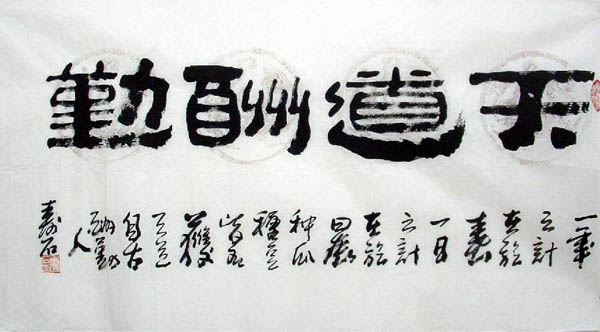 天道酬勤
一年
之計
在於
春
一日
之計
在於
种瓜
種豆
皆有
獲
天道
自古
酬勤
人
壽石